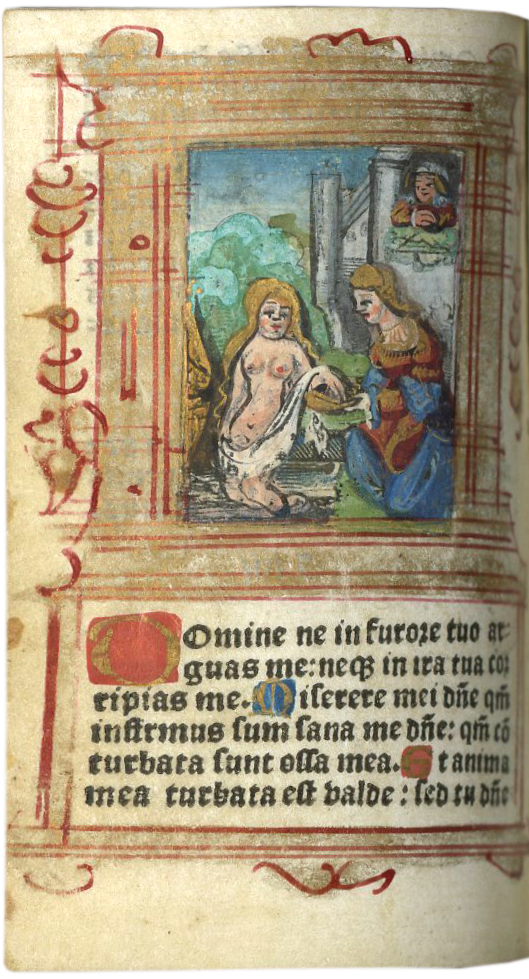 Domine ne in furore tuo ar-
guas me: neqꝫ in ira tua cor
ripias me. Miserere mei dñe qm̃
infirmus sum sana me dñe: qm̃ cõ
turbata sunt ossa mea. Et anima
mea turbata est valde: sed tu dñe